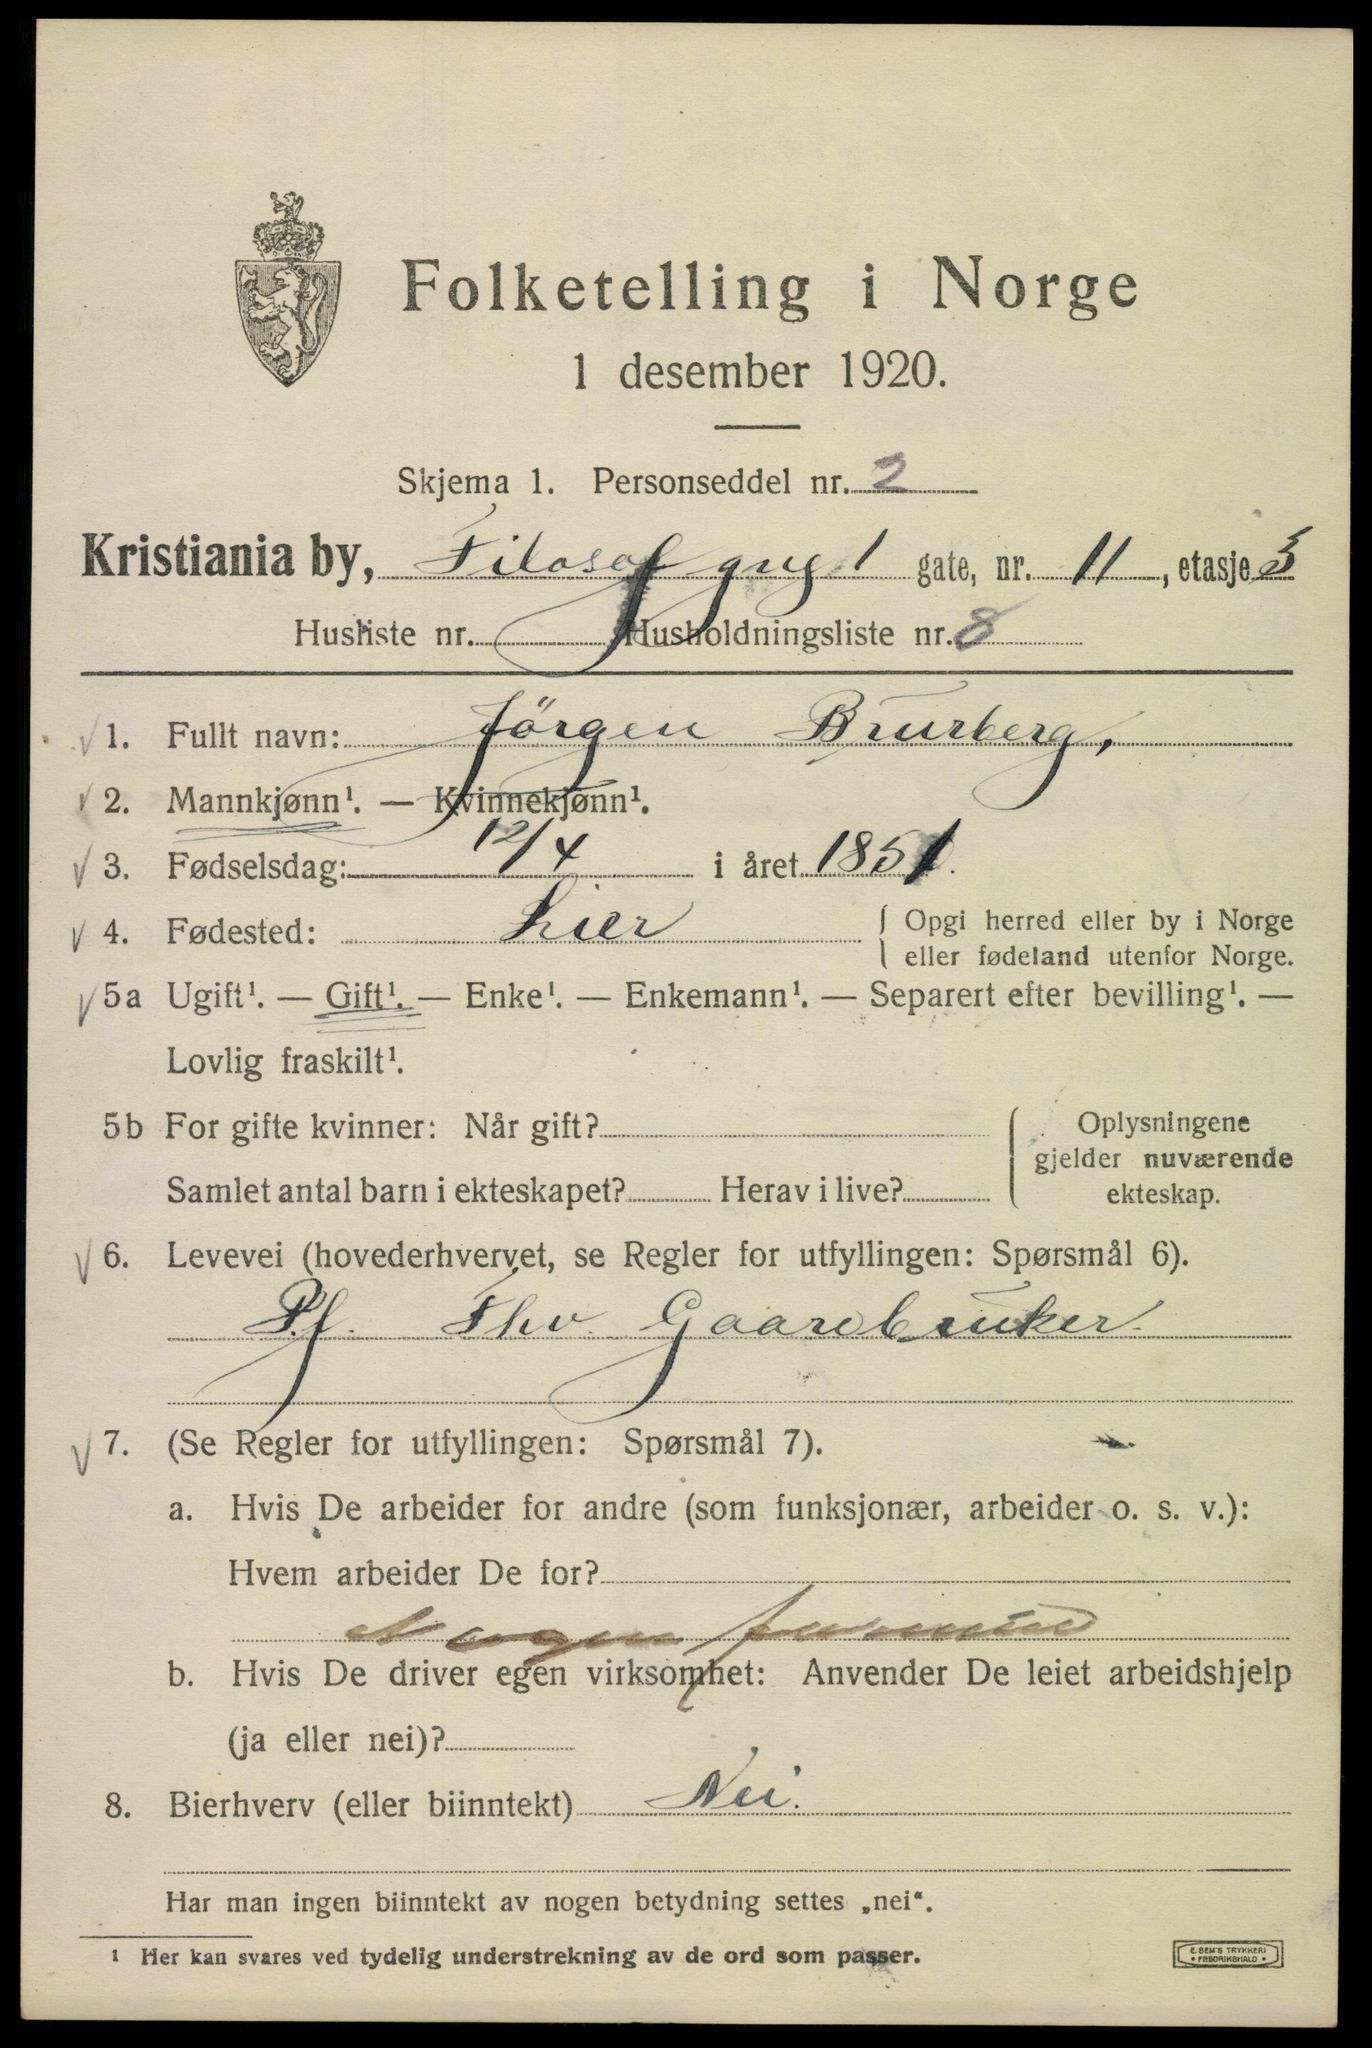 Folketelling i Norge
1 desember 1920.
Skjema 1. Personseddel nr. 2
Kristiania by, Filosof gate, nr. 11, etasje 3
Husliste nr. Husholdningsliste nr. 8
1. Fullt navn: Jörgen Brurberg,
2. Mannkjønn¹. — Kvinnekjønn¹.
3. Fødselsdag: 12/4 i året 1851.
4. Fødested: Lier { Opgi herred eller by i Norge
eller fødeland utenfor Norge.
5a Ugift¹. — Gift¹. — Enke¹. — Enkemann¹. — Separert efter bevilling¹. —
Lovlig fraskilt¹.
5b For gifte kvinner: Når gift? { Oplysningene
gjelder nuværende
Samlet antal barn i ekteskapet? Herav i live? ekteskap.
6. Levevei (hovederhvervet, se Regler for utfyllingen: Spørsmål 6).
P.f. Fhv. Gaardbruker.
7. (Se Regler for utfyllingen: Spørsmål 7).
a. Hvis De arbeider for andre (som funksjonær, arbeider o. s. v.):
Hvem arbeider De for?
b. Hvis De driver egen virksomhet: Anvender De leiet arbeidshjelp
(ja eller nei)?
8. Bierhverv (eller biinntekt) Nei.
Har man ingen biinntekt av nogen betydning settes „nei“.
¹ Her kan svares ved tydelig understrekning av de ord som passer.
E. SEM'S TRYKKERI
• FREDRIKSHALD •